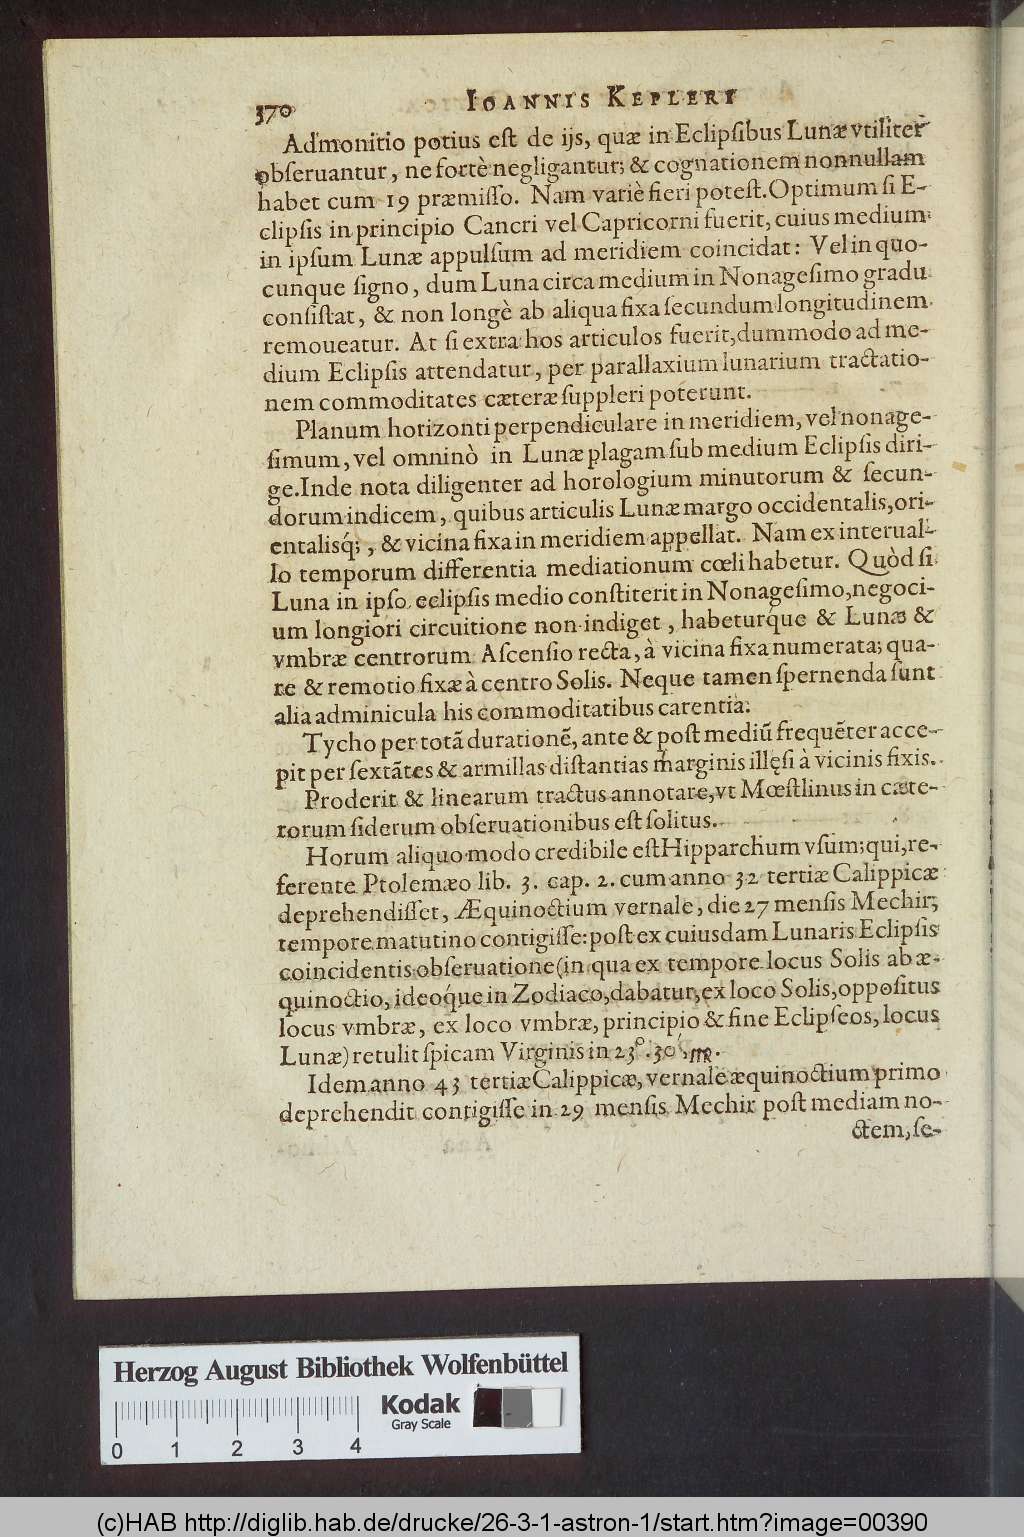 370 IOANNIS KEPLERI
Admonitio potius eſt de ijs, quæ in Eclipſibus Lunæ vtiliter
obſeruantur, ne fortè negligantur; & cognationem nonnullam
habet cum 19 præmiſſo. Nam variè fieri poteſt. Optimum ſi E-
clipſis in principio Cancri vel Capricorni fuerit, cuius medium
in ipſum Lunæ appulſum ad meridiem coincidat: Vel in quo-
cunque ſigno, dum Luna circa medium in Nonageſimo gradu
conſiſtat, & non longè ab aliqua fixa ſecundum longitudinem
remoueatur. At ſi extra hos articulos fuerit, dummodo ad me-
dium Eclipſis attendatur, per parallaxium lunarium tractatio-
nem commoditates cæteræ ſuppleri poterunt.
Planum horizonti perpendiculare in meridiem, vel nonage-
ſimum, vel omninò in Lunæ plagam ſub medium Eclipſis diri-
ge. Inde nota diligenter ad horologium minutorum & ſecun-
dorum indicem, quibus articulis Lunæ margo occidentalis, ori-
entalisq́;, & vicina fixa in meridiem appellat. Nam ex interual-
lo temporum differentia mediationum cœli habetur. Quòd ſi
Luna in ipſo eclipſis medio conſtiterit in Nonageſimo, negoci-
um longiori circuitione non indiget, habeturq́ue & Lunæ &
vmbræ centrorum Aſcenſio recta, à vicina fixa numerata; qua-
re & remotio fixæ à centro Solis. Neque tamen ſpernenda ſunt
alia adminicula his commoditatibus carentia:
Tycho per totã durationẽ, ante & poſt mediũ frequẽter acce-
pit per ſextãtes & armillas diſtantias marginis illęſi à vicinis fixis.
Proderit & linearum tractus annotare, vt Mœſtlinus in cæte-
rorum ſiderum obſeruationibus eſt ſolitus.
Horum aliquo modo credibile eſt Hipparchum vſum; qui, re-
ferente Ptolemæo lib. 3. cap. 2. cum anno 32 tertiæ Calippicæ
deprehendiſſet, Æquinoctium vernale, die 27 menſis Mechir,
tempore matutino contigiſſe: poſt ex cuiusdam Lunaris Eclipſis
coincidentis obſeruatione (in qua ex tempore locus Solis ab æ-
quinoctio, ideoq́ue in Zodiaco, dabatur, ex loco Solis, oppoſitus
locus vmbræ, ex loco vmbræ, principio & fine Eclipſeos, locus
Lunæ) retulit ſpicam Virginis in 23°. 30′, ♍.
Idem anno 43 tertiæ Calippicæ, vernale æquinoctium primo
deprehendit contigiſſe in 29 menſis Mechir poſt mediam no-
ctem, ſe-
Herzog August Bibliothek Wolfenbüttel
Kodak
Gray Scale
0 1 2 3 4
(c)HAB http://diglib.hab.de/drucke/26-3-1-astron-1/start.htm?image=00390